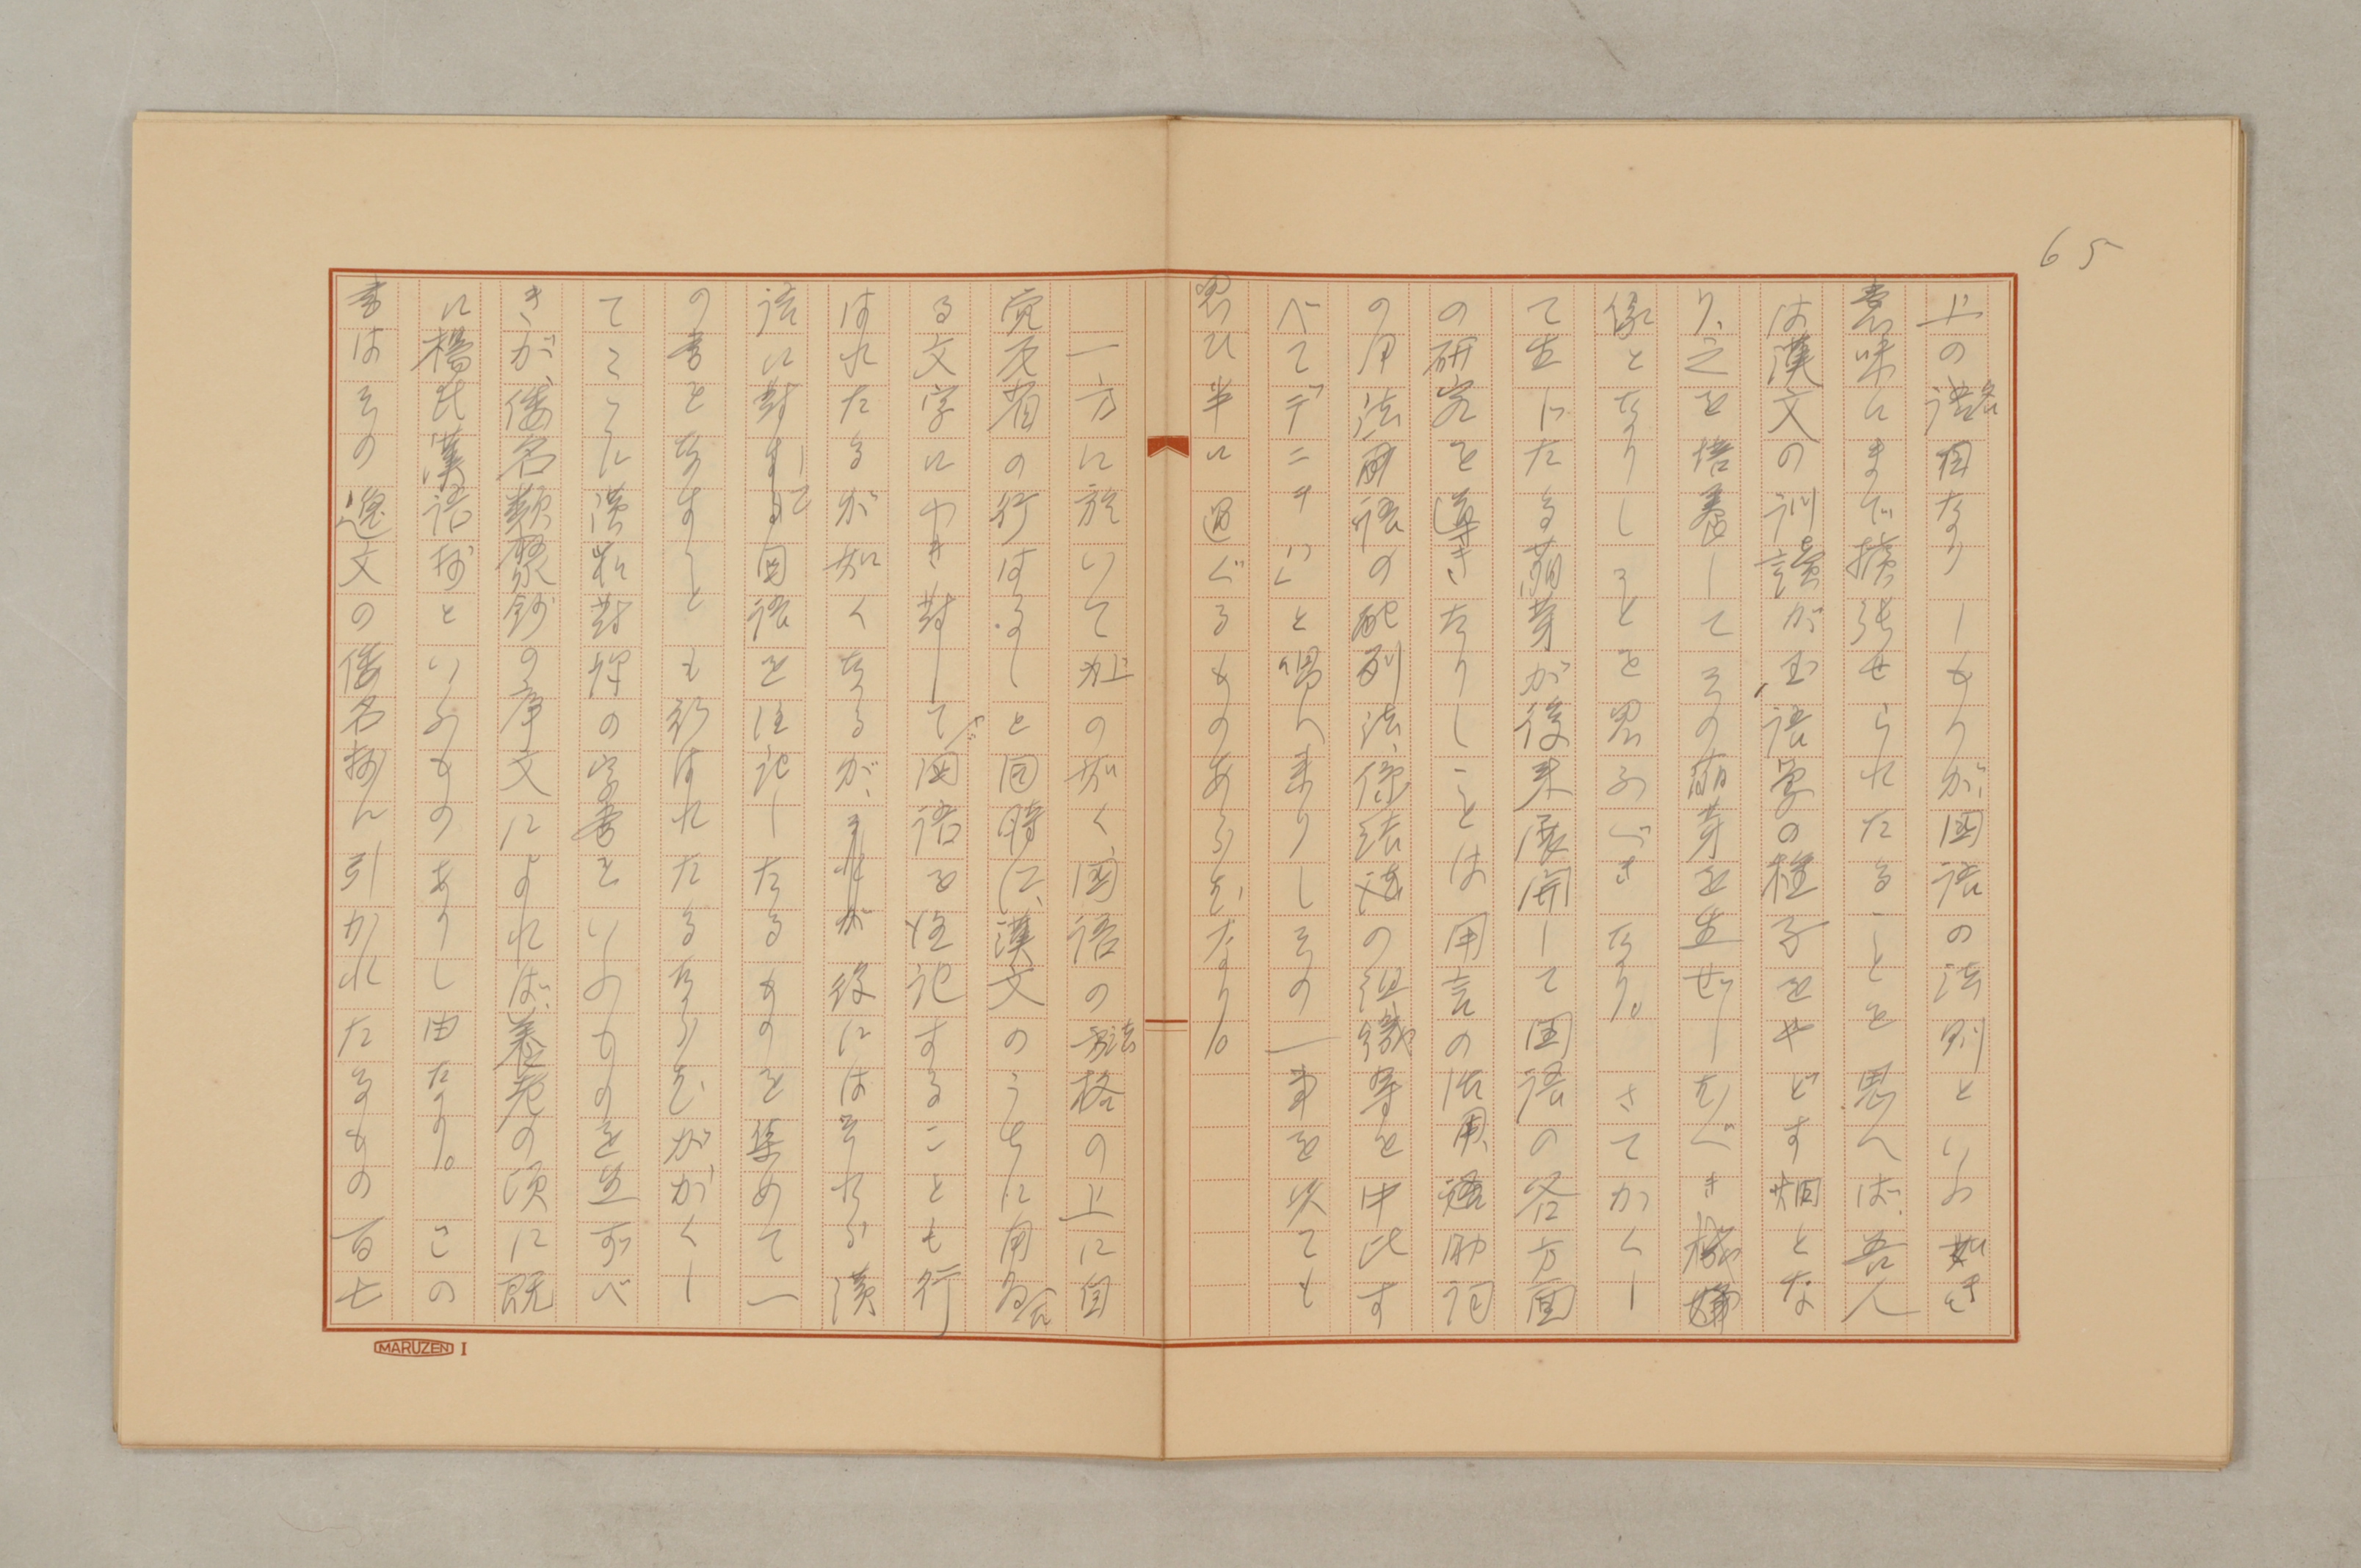 65
上の諸国なりしものが、国語の法則といふ如き
意味にまで擴張せられたることを思へば、吾人
は漢文の訓讀が国語学の種子をやどす畑とな
り、之を培養してその萌芽を生ぜしむべき機
縁となりしことを思ふべきなり。さてかくし
て生じたる萌芽が後来展開して国語の各方面
の研究を導きたりしことは用言の活用、助詞
の用法、語の配列法、係結法の組織等を中比す
べてテニヲハと唱へ来りしその一事を以ても
思ひ半に過ぐるものあらむなり。
一方に於いて上の如く、国語の法格の上に自
覚反省の行はるゝと同時に、漢文のうちに用ゐ
る文字につき對して国語を注記することも行
はれたるが如くなるが、後にはそれら漢
語に對する国語を注記したるものを集めて一
の書となすことも行はれたるならむが、かくし
てこゝに漢和對譯の字書といふものを生ずべ
きが、倭名類聚鈔の序文によれば、養老の頃に既
に楊氏漢語抄といふものありし由なり。この
書はその逸文の倭名抄に引かれたるもの百七
MARUZEN I